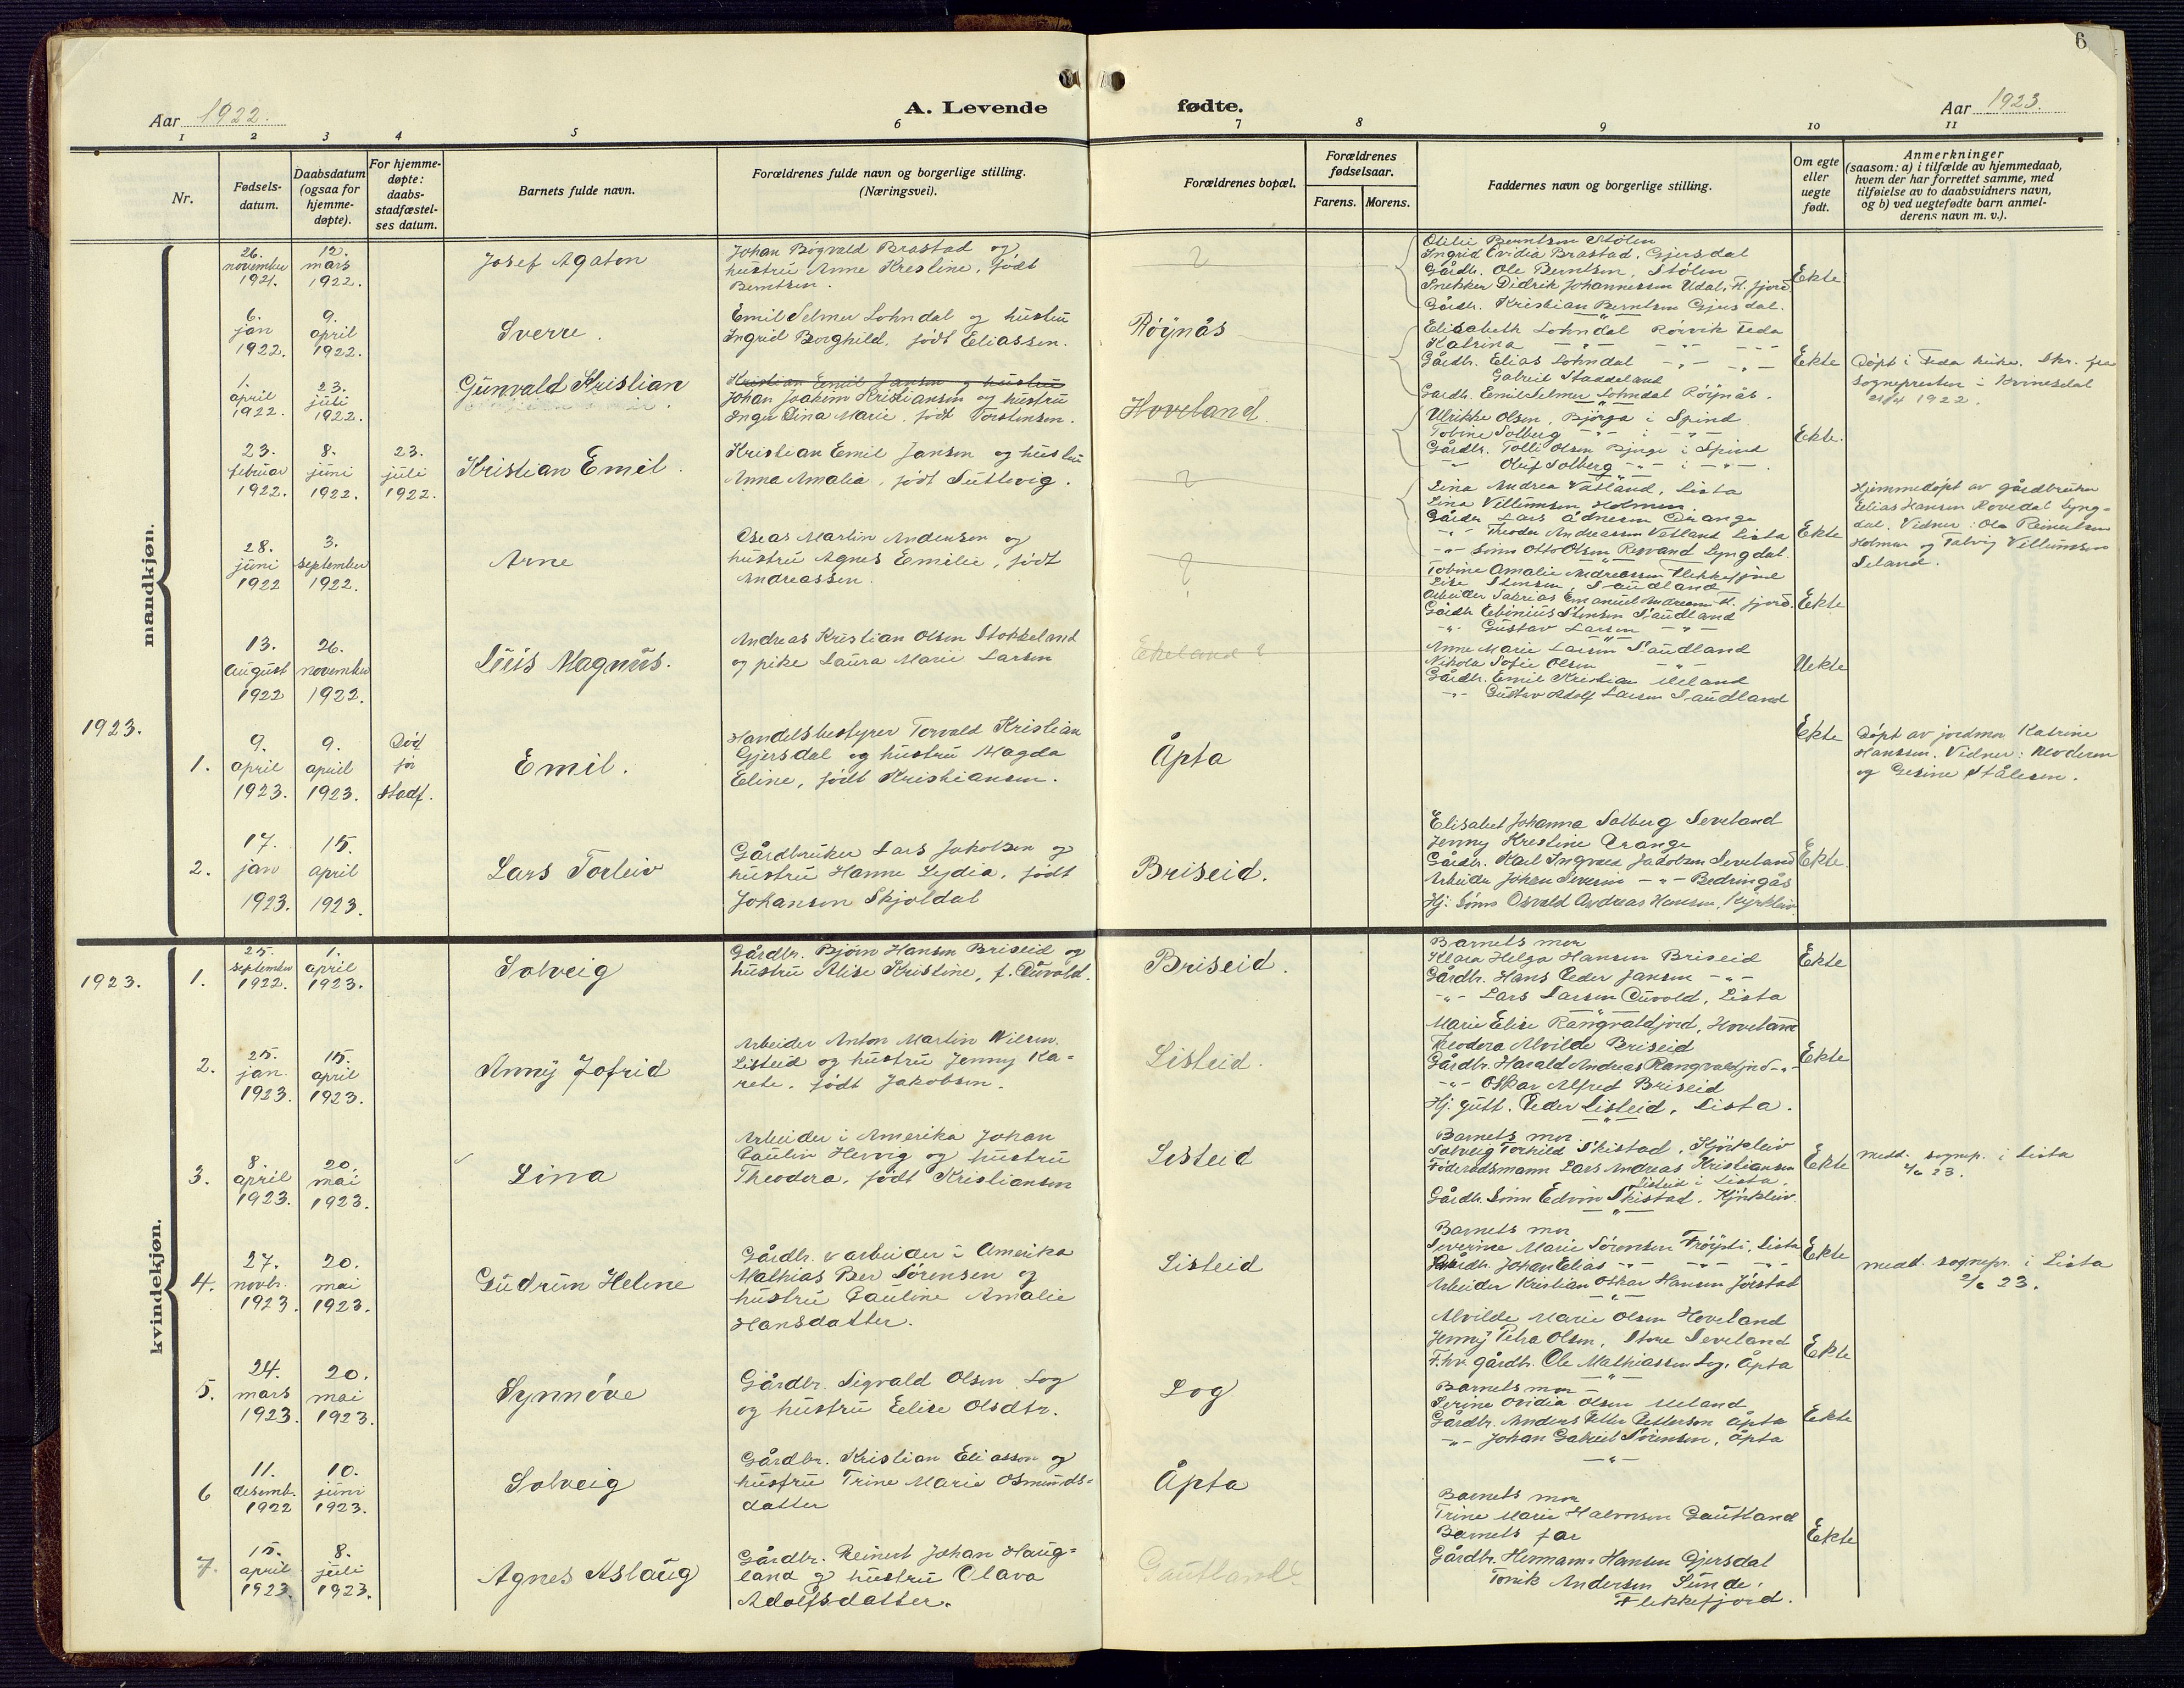 6
Aar 1922.
A. Levende
fødte.
Aar 1923.
1 2 3 4 5 6
7 8 9 10 11
Nr.
Fødsels-
datum.
Daabsdatum
(ogsaa for
hjemme-
døpte).
For hjemme-
døpte:
daabs-
stadfæstel-
ses datum.
Barnets fulde navn.
Forældrenes fulde navn og borgerlige stilling.
(Næringsvei).
Forældrenes bopæl.
Forældrenes
fødselsaar.
Farens. Morens.
Faddernes navn og borgerlige stilling.
Om egte
eller
uegte
født.
Anmerkninger
(saasom: a) i tilfælde av hjemmedaab,
hvem der har forrettet samme, med
tilføielse av to daabsvidners navn,
og b) ved uegtefødte barn anmel-
derens navn m. v.).
mandkjøn.
26.
november
1921.
12.
mars
1922.
Josef Agaton
Johan Bögvald Brastad og
hustru Anne Krestine, født
Berntsen.
?
Otilie Berntsen Stølen
Ingrid Ovidia Brastad, Gjersdal
Gårdb. Ole Berntsen, Stølen
Snekker Didrik Johannessen Udal, Fl. fjord
Gårdb. Kristian Berntsen Gjersdal.
Ekte
6.
jan
1922.
9.
april
1922.
Sverre.
Emil Selmer Lohndal og hustru
Ingrid Borghild, født Eliassen.
Røynås
Elisabeth Lohndal Rørvik Feda
Katrina -"- -"- -"-
Gårdbr. Elias Lohndal -"- -"-
Gabriel Staddeland
Gaardb. Emil Selmer Lohndal Røynås.
Ekte
Døpt i Feda kirke. Skr. fra
sognepresten i Kvinesdal
1922.
1.
april
1922.
23.
juli
1922.
Gunvald Kristian
Kristian Emil Jansen og hustru
Johan Joakim Kristiansen og hustru
Inga Dina Marie, født Torstensen.
Hoveland
Ulrikke Olsen, Bjørga i Spind
Tobine Solberg -"- i -"-
Gårdbr. Tolli Olsen Bjørge i Spind
-"- Oluf Solberg -"- i -"-.
Ekte.
23.
februar
1922.
8.
juni
1922.
23.
juli
1922.
Kristian Emil.
Kristian Emil Jansen og hustru
Anna Amalia, født Tutlevig.
?
Lina Andrea Vatland, Lista
Lina Villumsen Holmen.
Gårdbr Lars Ådnesen Drange
-"- Theodor Andreassen Vatland Lista
-"- sønn Otto Olsen Røsvand Lyngdal.
Ekte
Hjemmedøpt av gårdbruker
Elias Hansen Rovedal Lyng-
dal. Vidner: Ola Reinertsen
Holmen og Talvig Villumsen
Seland.
28.
juni
1922
3.
september
1922.
Arne
Oseas Martin Andersen og
hustru Agnes Emilie, født
Andreassen.
?
Tobine Amalie Andreassen Flekkefjord
Lise Stensen, Saudland
Arbeider Sakrias Emanuel Andreassen Fl. fjord.
Gårdb. Ebinius Stensen Saudland
-"- Gustav Larsen -"-
Ekte
13.
August
1922
26.
november
1922.
Luis Magnus.
Andreas Kristian Olsen Stokkeland
og pike Laura Marie Larsen
Ekeland ?
Anne Marie Larsen Saudland
Nikola Sofie Olsen -"-
Gårdb. Emil Kristian Ueland
-"- Gustav Adolf Larsen Saudland
Uekte
1923.
1.
9.
april
1923.
9.
april
1923.
Død
før
stadf.
Emil.
Handelsbestyrer Torvald Kristian
Gjersdal og hustru Magda
Eline, født Kristiansen.
Åpta
Ekte
Døpt av jordmor Katrine
Hanssen. Vidner: Moderen
og Gesine Stålesen.
2.
17.
jan
1923.
15.
april
1923.
Lars Torleiv
Gårdbruker Lars Jakobsen og
hustru Hanne Lydia, født
Johansen Skjoldal
Briseid.
Elisabet Johanna Solberg Seveland
Jenny Krestine Drange
Gårdbr. Karl Ingvald Jakobsen Seveland
Arbeider Johan Severin -"- Bedringås
Hj: sønn Osvald Andreas Hansen, Kjørkleiv
Ekte
kvindekjøn.
1923.
1.
25.
september
1922.
1.
april
1923.
Solveig
Gårdbr. Bjørn Hansen Briseid og
hustru Alise Kristine, f. Duvold.
Briseid.
Barnets mor
Klara Helga Hansen Briseid
Gårdbr. Hans Peder Jansen -"-
-"- Lars Larsen Duvold, Lista
Ekte
2.
25.
jan.
1923.
15.
april
1923.
Anny Jofrid
Arbeider Anton Martin Nilsen
Listeid og hustru Jenny Ka-
rete, født Jakobsen.
Listeid.
Marie Elise Rangvaldjord, Hoveland
Theodora Alvilde Briseid
Gårdbr. Harald Andreas Rangvaldjord -"-
-"- Oskar Alfred Briseid
Hj. gutt. Peder Listeid, Lista.
Ekte
3.
8.
april
1923.
20.
mai
1923.
Lina
Arbeider i Amerika Johan
Paulin Hervig og hustru
Theodora, født Kristiansen
Listeid
Barnets mor.
Solveig Torhild Skistad, Kjørkleiv
Føderådsmann Lars Andreas Kristiansen
Listeid i Lista.
Gårdb. sønn Edvin Skistad, Kjørkleiv.
Ekte
medd. sognepr. i Lista
2/6 23.
4.
27.
novbr.
1923.
20.
mai
1923.
Gudrun Helene
Gårdbr. & arbeider i Amerika
Mathias Ber Sørensen og
hustru Pauline Amalie
Hansdatter.
Listeid
Barnets mor
Severine Marie Sørensen Frøysti, Lista
Gårdb. Johan Elias -"- -"- -"-
Arbeider Kristian Oskar Hansen Jørstad
Ekte
medd. sognepr. i Lista
2/6 23.
5.
24.
mars
1923.
20.
mai
1923.
Synnøve
Gårdbr. Sigvald Olsen Log
og hustru Elise Olsdtr.
Log
Alvilde Marie Olsen Hoveland
Jenny Petra Olsen, Store Seveland
F.hv. gårdbr. Ole Mathiassen Log, Åpta
Ekte
6
11.
desemb.
1922
10.
juni
1923.
Solveig
Gårdbr. Kristian Eliassen og
hustru Trine Marie Osmunds-
datter
Åpta
Barnets mor
Serine Ovidia Olsen Ueland
Gårdbr. Anders Petter Pettersen Åpta
-"- Johan Gabriel Sørensen, Åpta
Ekte
7.
15.
april
1923.
8.
juli
1923.
Agnes Aslaug
Gårdbr. Reinert Johan Haug-
land og hustru Olava
Adolfsdatter.
Gautland?
Barnets mor
Trine Marie Halvorsen Gautland
Barnets far
Gårdbr. Hermann Hansen Gjersdal
Tonik Andersen Sunde,
Flekkefjord.
Ekte